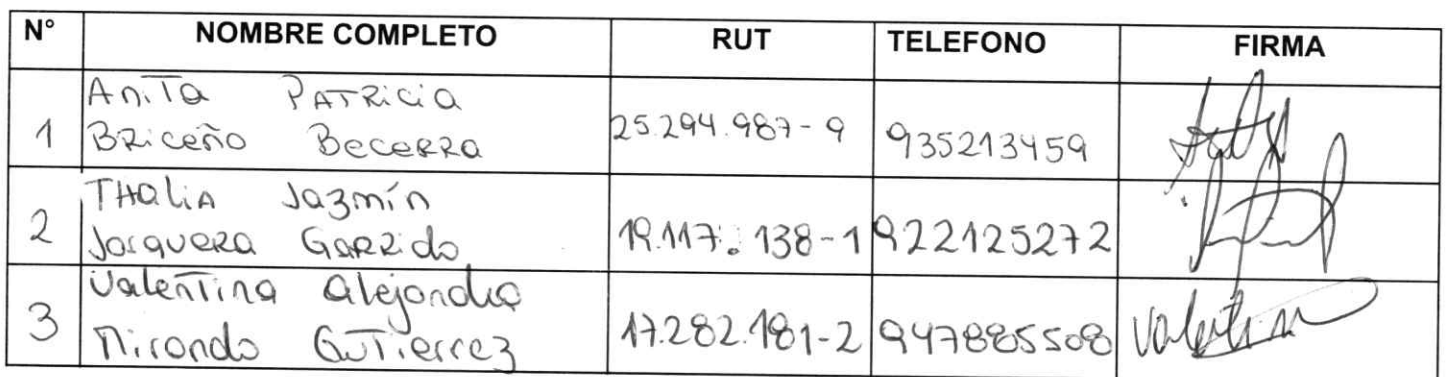 N° NOMBRE COMPLETO RUT TELEFONO FIRMA
Anita Patricia
1 Briceño Becerra 25.294.987-9 935213459
Thalia Jazmín
2 Jorquera Garrido 19.117.138-1 922125272
Valentina Alejandra
3 Miranda Gutierrez 17.282.181-2 947885508 Valentina